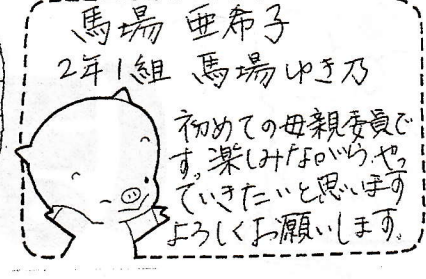 馬場 亜希子
2年1組 馬場ゆき乃
初めての母親委員で
す。楽しみながら、やっ
ていきたいと思います
よろしくお願いします。